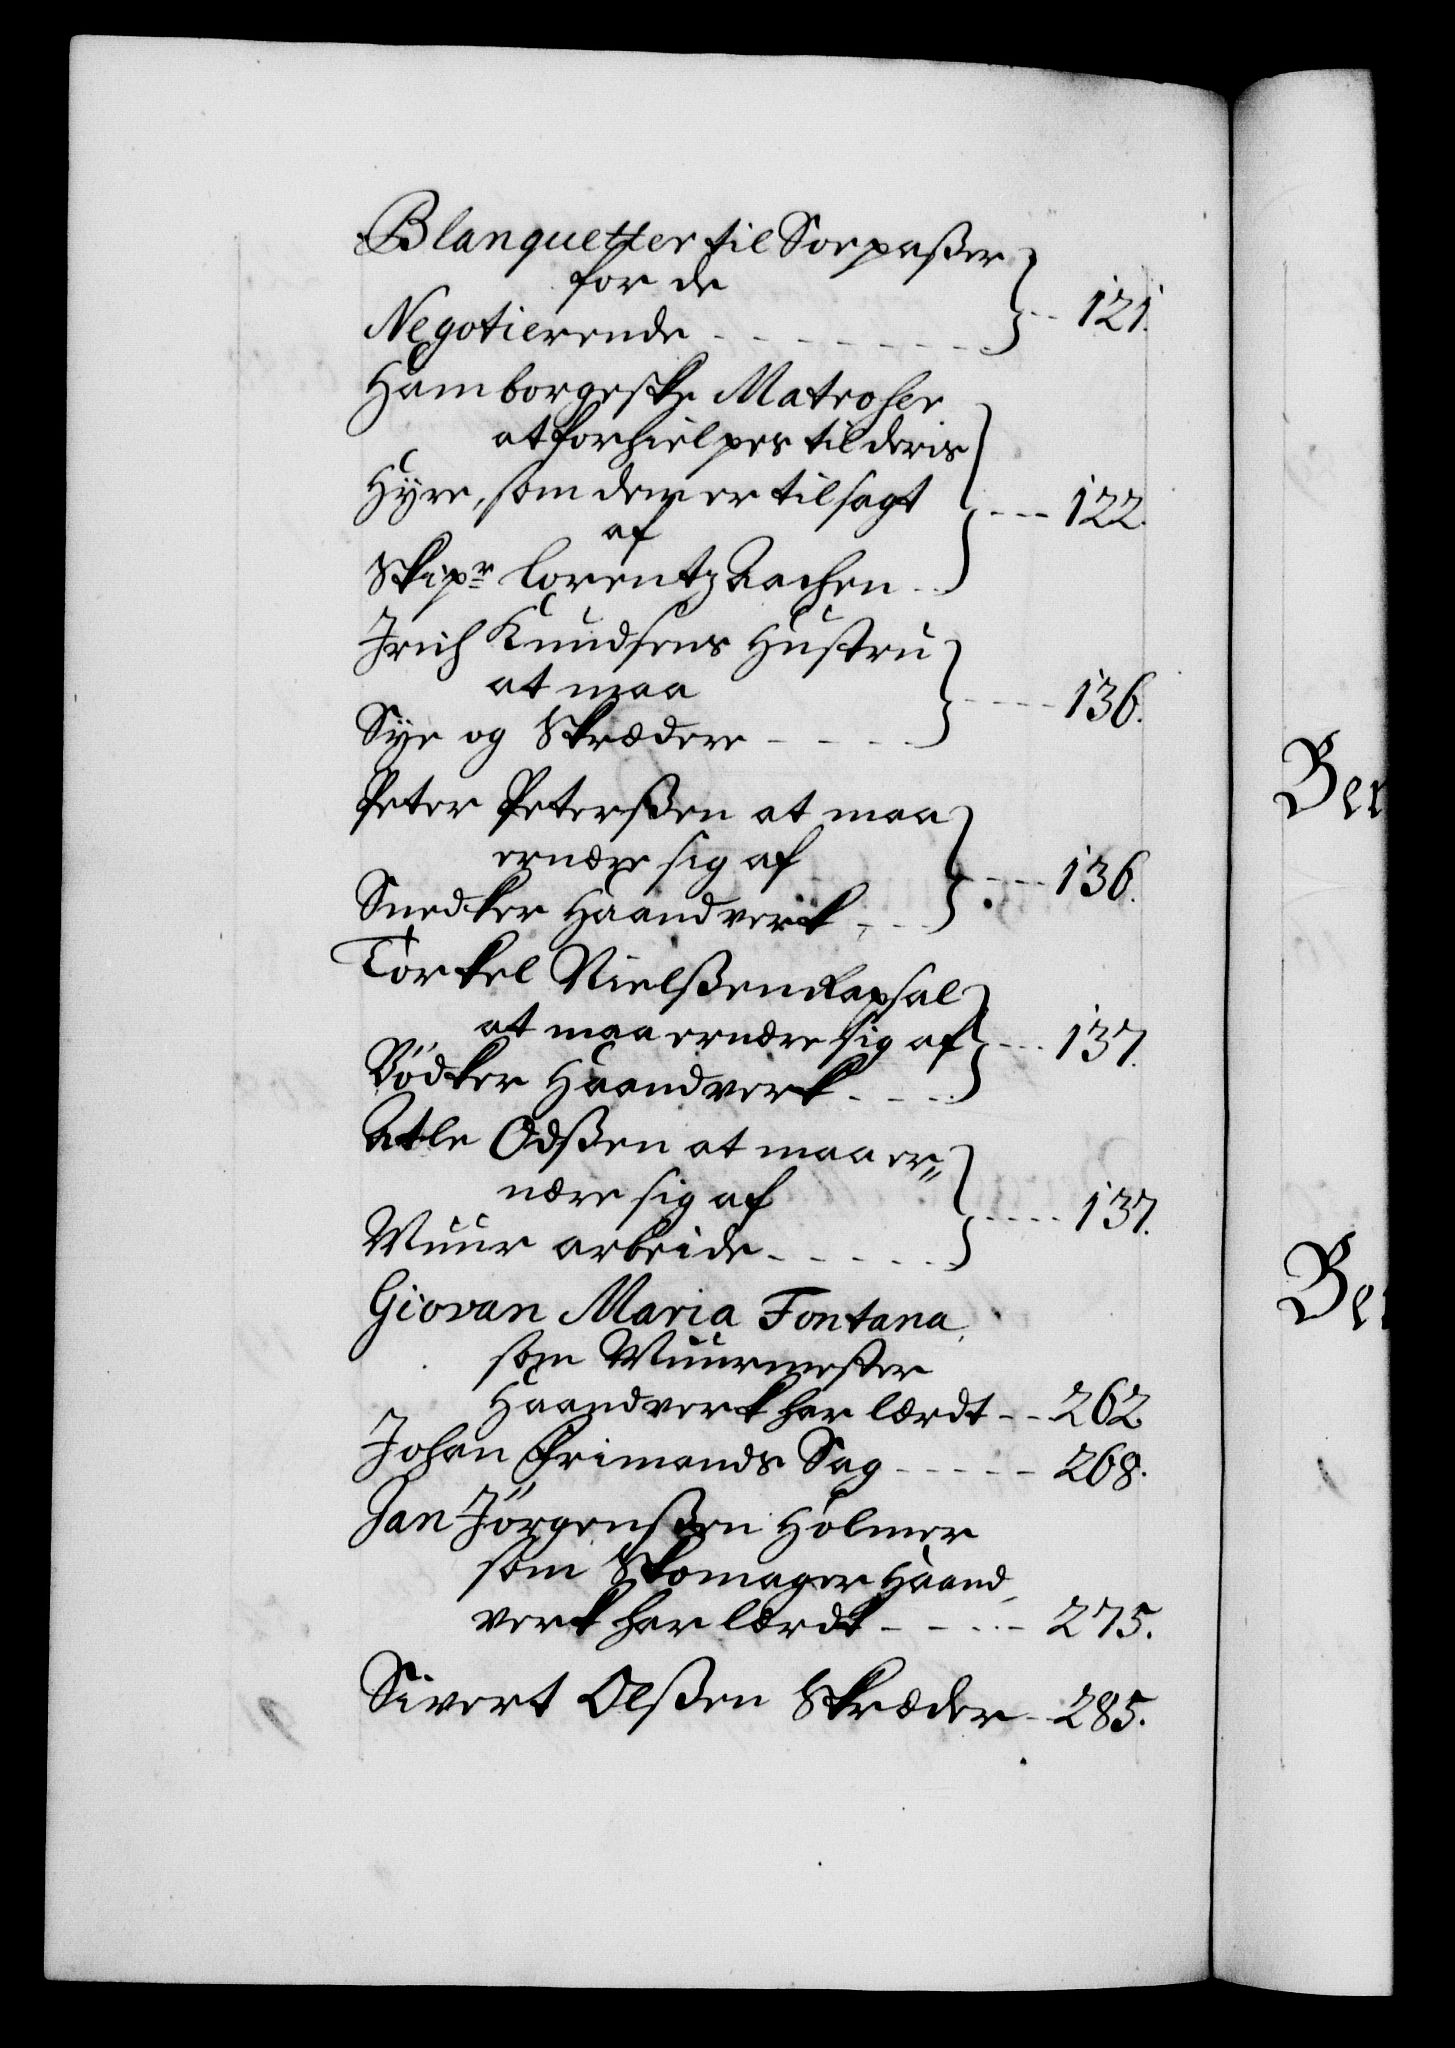 Blanquetter til Søepasser
for de
Negotierende - - - - - - - 121.
Hamborgeske Matroser
at forhielpes til deris
Hyre, som dem er tilsagt
af - - - 122.
Skipr Lorentz Aachen - -
Irich Knudsens Hustru
at maa - - - - 136.
Sye og Skrædere - - - -
Peter Peterßen at maa
ernære sig af - - - - 136.
Snedker Haandverk - - -
Torkel Nielßen Rapsal
at maa ernære sig af - - - 137.
Bödker Haandverk - - - -
Atle Odßen at maa er„
nære sig af - - - - 137.
Muur arbeide - - - - - -
Giovan Maria Fontana
som Muurmester
Haandverk har lærdt - - 262
Johan Frimands Sag - - - - - 268.
Jan Jörgenßen Holmer
som Skomager Haand
verk har lærdt - - - - - 275.
Sivert Olßen Skræder - 285.
Ber
Ber